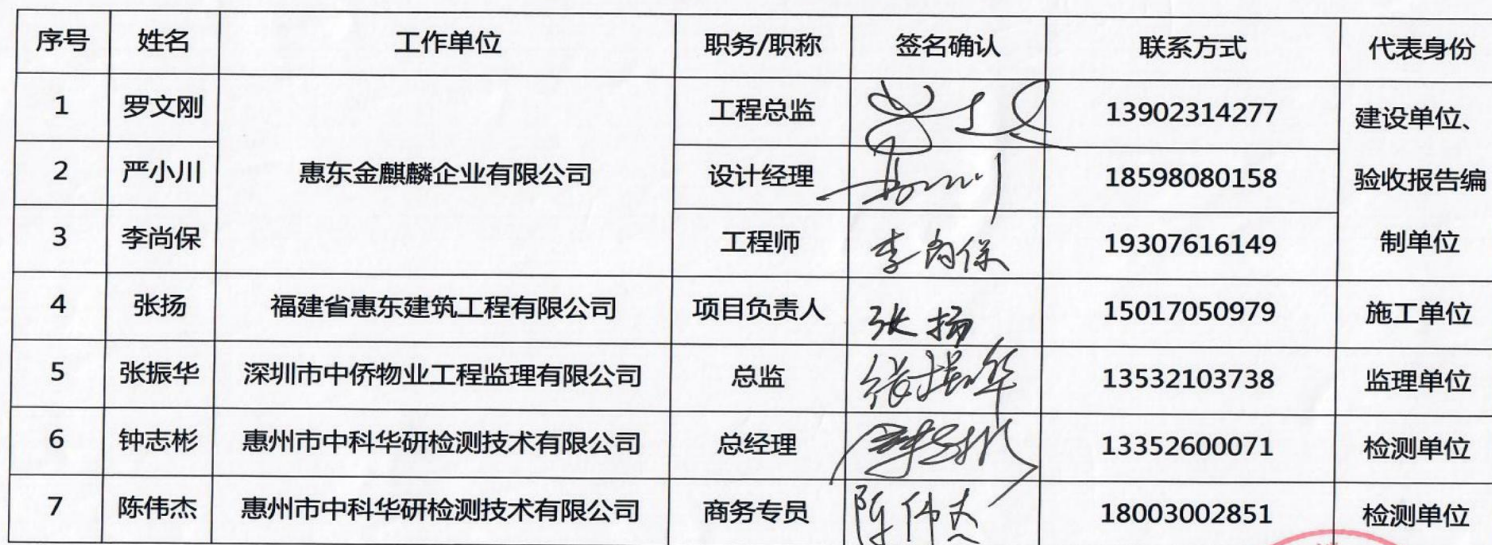 序号 姓名 工作单位 职务/职称 签名确认 联系方式 代表身份
1 罗文刚 工程总监 13902314277 建设单位、
2 严小川 惠东金麒麟企业有限公司 设计经理 18598080158 验收报告编
3 李尚保 工程师 李尚保 19307616149 制单位
4 张扬 福建省惠东建筑工程有限公司 项目负责人 张扬 15017050979 施工单位
5 张振华 深圳市中侨物业工程监理有限公司 总监 张振华 13532103738 监理单位
6 钟志彬 惠州市中科华研检测技术有限公司 总经理 13352600071 检测单位
7 陈伟杰 惠州市中科华研检测技术有限公司 商务专员 陈伟杰 18003002851 检测单位